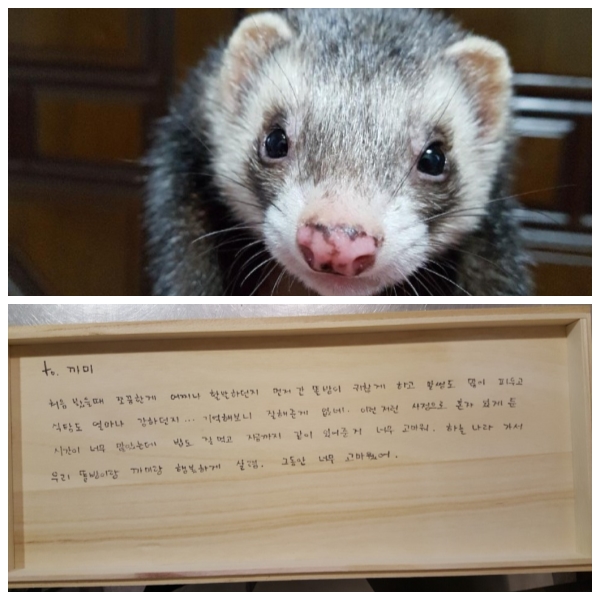 to. 까미
처음 봤을때 쪼끄만게 어찌나 활발하던지 먼저 간 똘밤이 귀찮게 하고 말썽도 많이 피우고
식탐도 얼마나 강하던지... 기억해보니 잘해준게 없네. 이런 저런 사정으로 혼자 있게 둔
시간이 너무 많았는데 밥도 잘 먹고 지금까지 같이 있어준거 너무 고마워. 하늘 나라 가서
우리 똘밤이랑 행복하게 살렴. 그동안 너무 고마웠어.